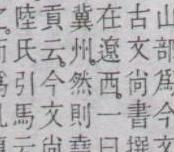 山部爲今文
古文尚書撰
在遼西。一曰
冀州。然則堯
貢云。今文尚
陸氏引馬云